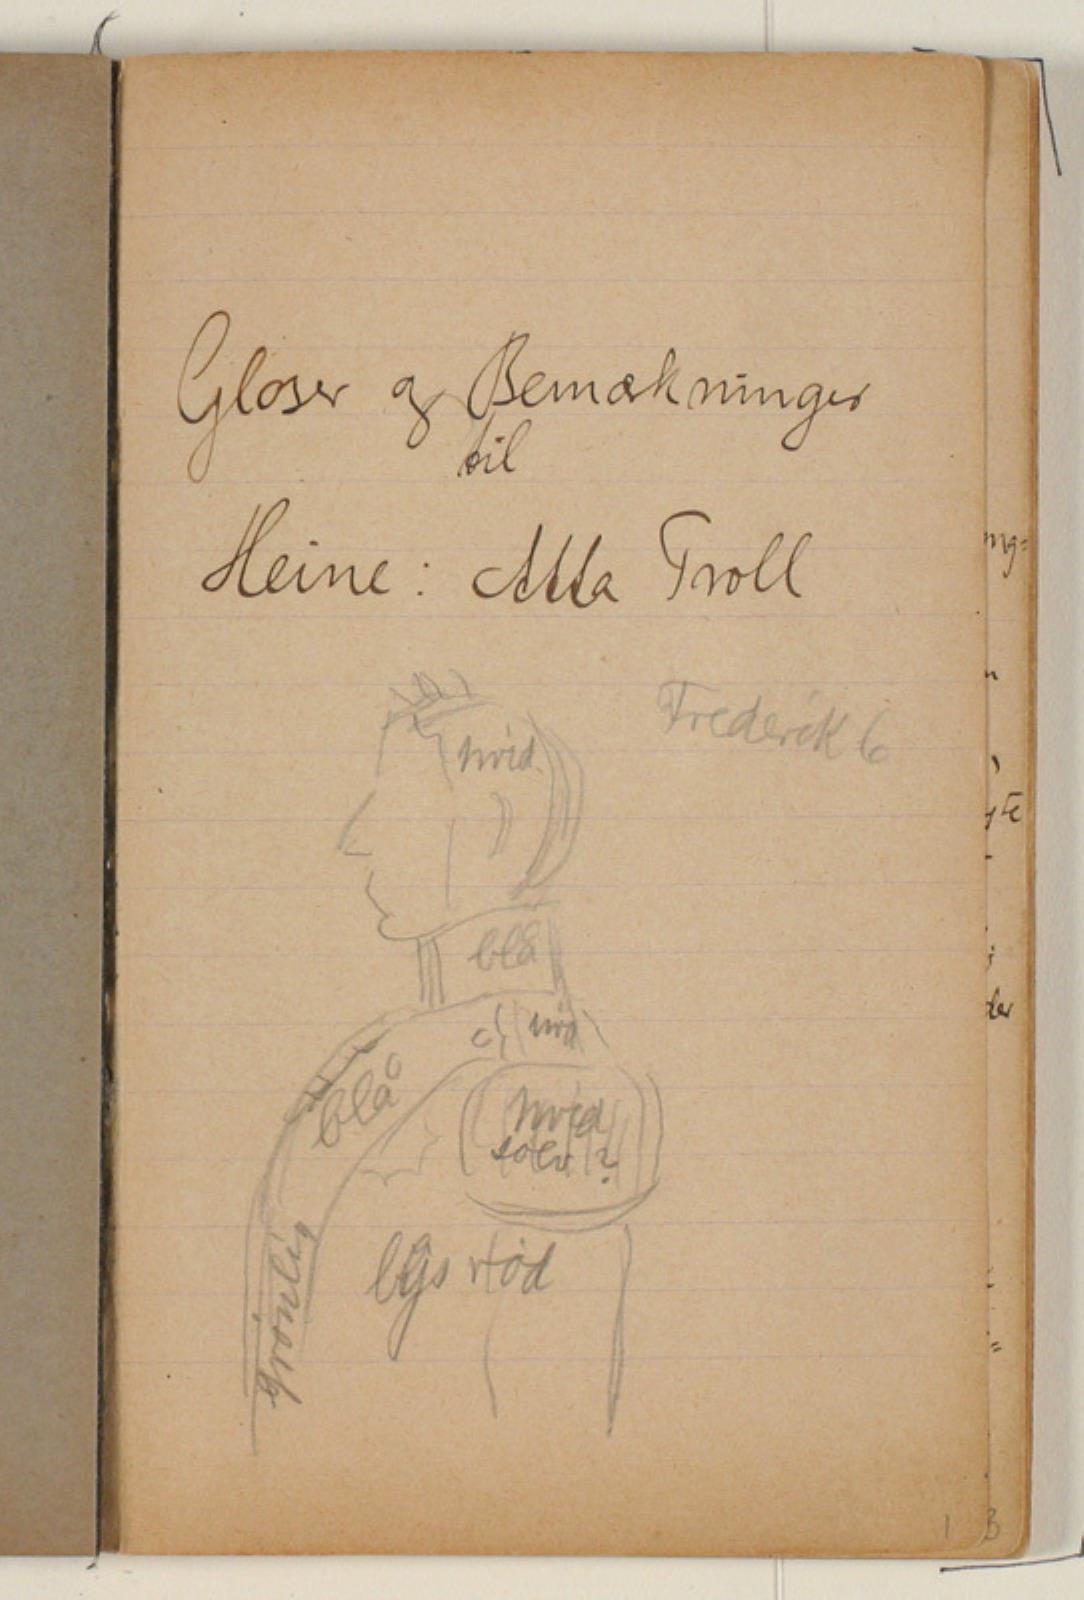 Gloser og Bemækninger
til
Heine: Atta Troll
Frederik 6
hvid
blå
hvid
blå
hvid
sølv?
lys rød
grønlig
1
3